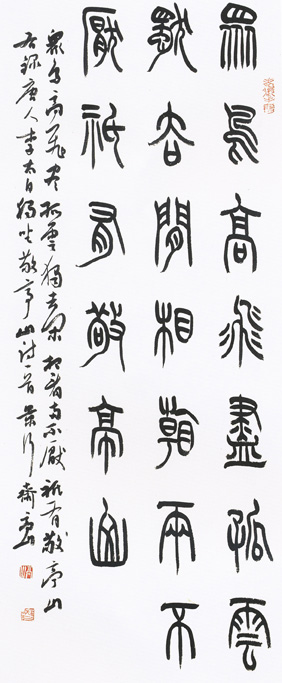 眾鳥高飛盡孤雲
獨去閒相看兩不
厭祇有敬亭山
眾鳥高飛盡孤雲獨去閒相看兩不厭祇有敬亭山
右錄唐人李太白獨坐敬亭山詩一首